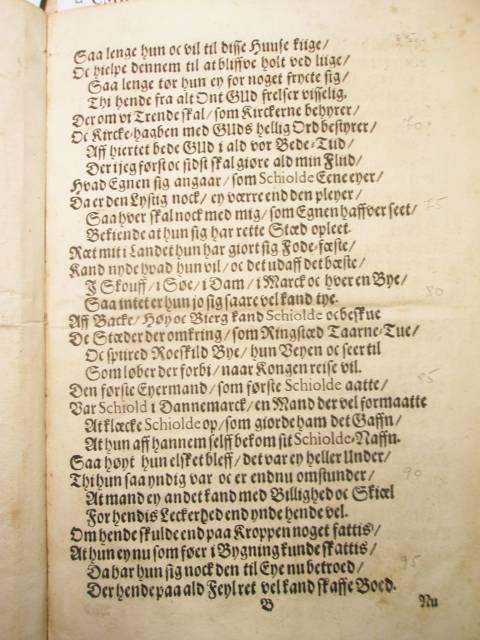 Saa lenge hun oc vil til disse Huuse kige/
Oc hielpe dennem til at bliffve holt ved liige/
Saa lenge tør hun ey for noget frycte sig/
Thi hende fra alt Ont GUD frelser visselig.
Der om vi Trende skal/ som Kirckerne behyrer/
Oc Kircke-haqben med GUDs hellig Ord bestyrer/
Aff hiertet bede GUD i ald vor Bede-Tiid/
Der i jeg først oc sidst skal giøre ald min Fliid/
Hvad Egnen sig angaar/ som Schiolde Eene eyer/
Da er den Lystig nock/ ey værre end den pleyer/
Saa hver skal nock med mig/ som Egnen haffver seet/
Bekiende at hun sig har rette Stæd opleet.
Ræt mit i Landet hun har giort sig Fode-fæste/
Kand nyde hvad hun vil/ oc det udaff det bæste/
I Skouff/ i Søe/ i Dam/ i Marck oc hver en Bye/
Saa intet er hun jo sig saare vel kand tye.
Aff Backe/ Høy oc Bierg kand Schiolde oc beskue
De Stæder der omkring/ som Ringstæd Taarne-Tue/
Oc spiired Roeskild Bye/ hun Veyen oc seer til
Som løber der forbi/ naar Kongen reise vil.
Den første Eyermand/ som første Schiolde aatte/
Var Schiold i Dannemarck/ en Mand der vel formaatte
At klæcke Schiolde op/ som giorde ham det Gaffn/
At hun aff hannem self bekom sit Schiolde-Naffn.
Saa høyt hun elsket bleff/ det var ey heller Under/
Thi hun saa yndig var oc er endnu omstunder/
At mand ey andet kand med Billighed oc Skiæl
For hendis Leckerhed end ynde hende vel.
Om hende skulde end paa Kroppen noget fattis/
At hun ey nu som føer i Bygning kunde skattis/
Da har hun sig nock den til Eye nu betroed/
Der hende paa ald Feyl ret vel kand skaffe Boed.
B Nu
80
85
90
95